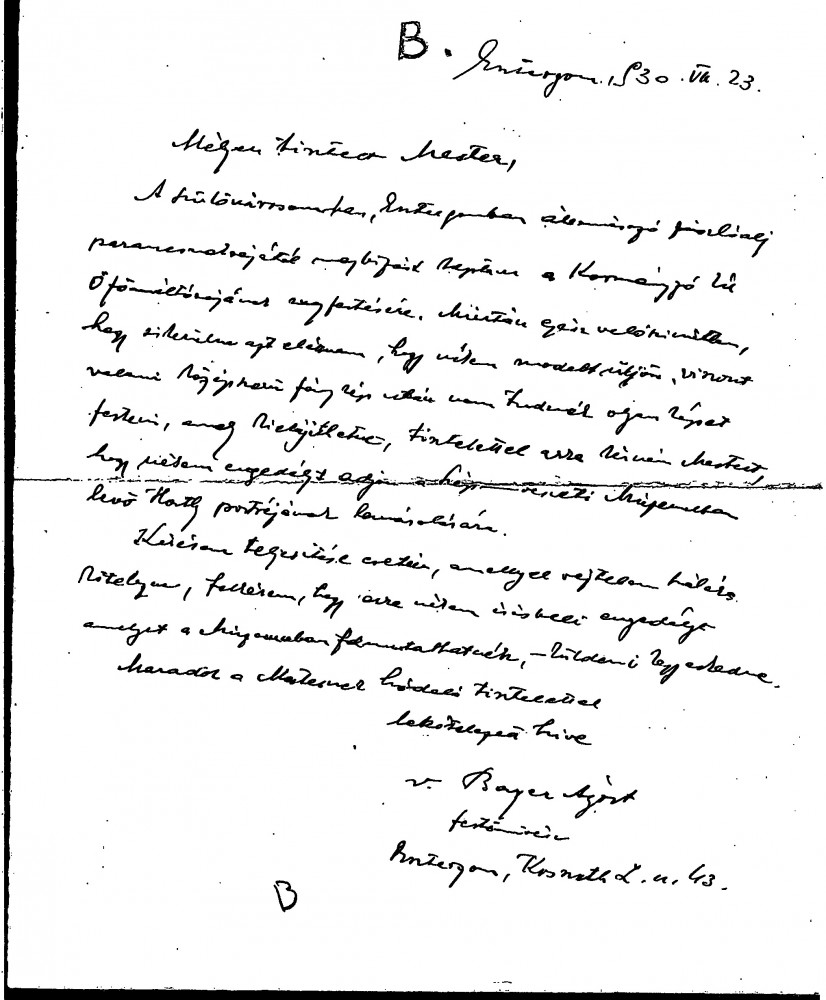 B.
Esztergom. 930. VII. 23.
Mélyen tisztelt Mester,
A szülővárosomban, Esztergomban állomásozó zászlóalj
parancsnokságától megbízást kaptam a Kormányzó Úr
Őfőméltóságának megfestésére. Miután egész valószínűtlen,
hogy sikerülne azt elérnem, hogy nékem modelt üljön, viszont
valami középszerű fénykép után nem tudnék olyan képet
festeni, amely kielégítene, tisztelettel arra kérném Mestert,
hogy nékem engedélyt adjon a Műcsarnokban
levő Horthy portréjának lemásolására.
Kérésem teljesítése esetén, amellyel végtelenül hálára
kötelezne, kérem, hogy erre nékem írásbeli engedélyt
amelyet a felmutathatnék, – küldeni kegyeskedne.
Maradok a Mesternek hódoló tisztelettel
lekötelezett híve
v. Bayer Ágost
festőművész
Esztergom, Kossuth L. u. 43.
B